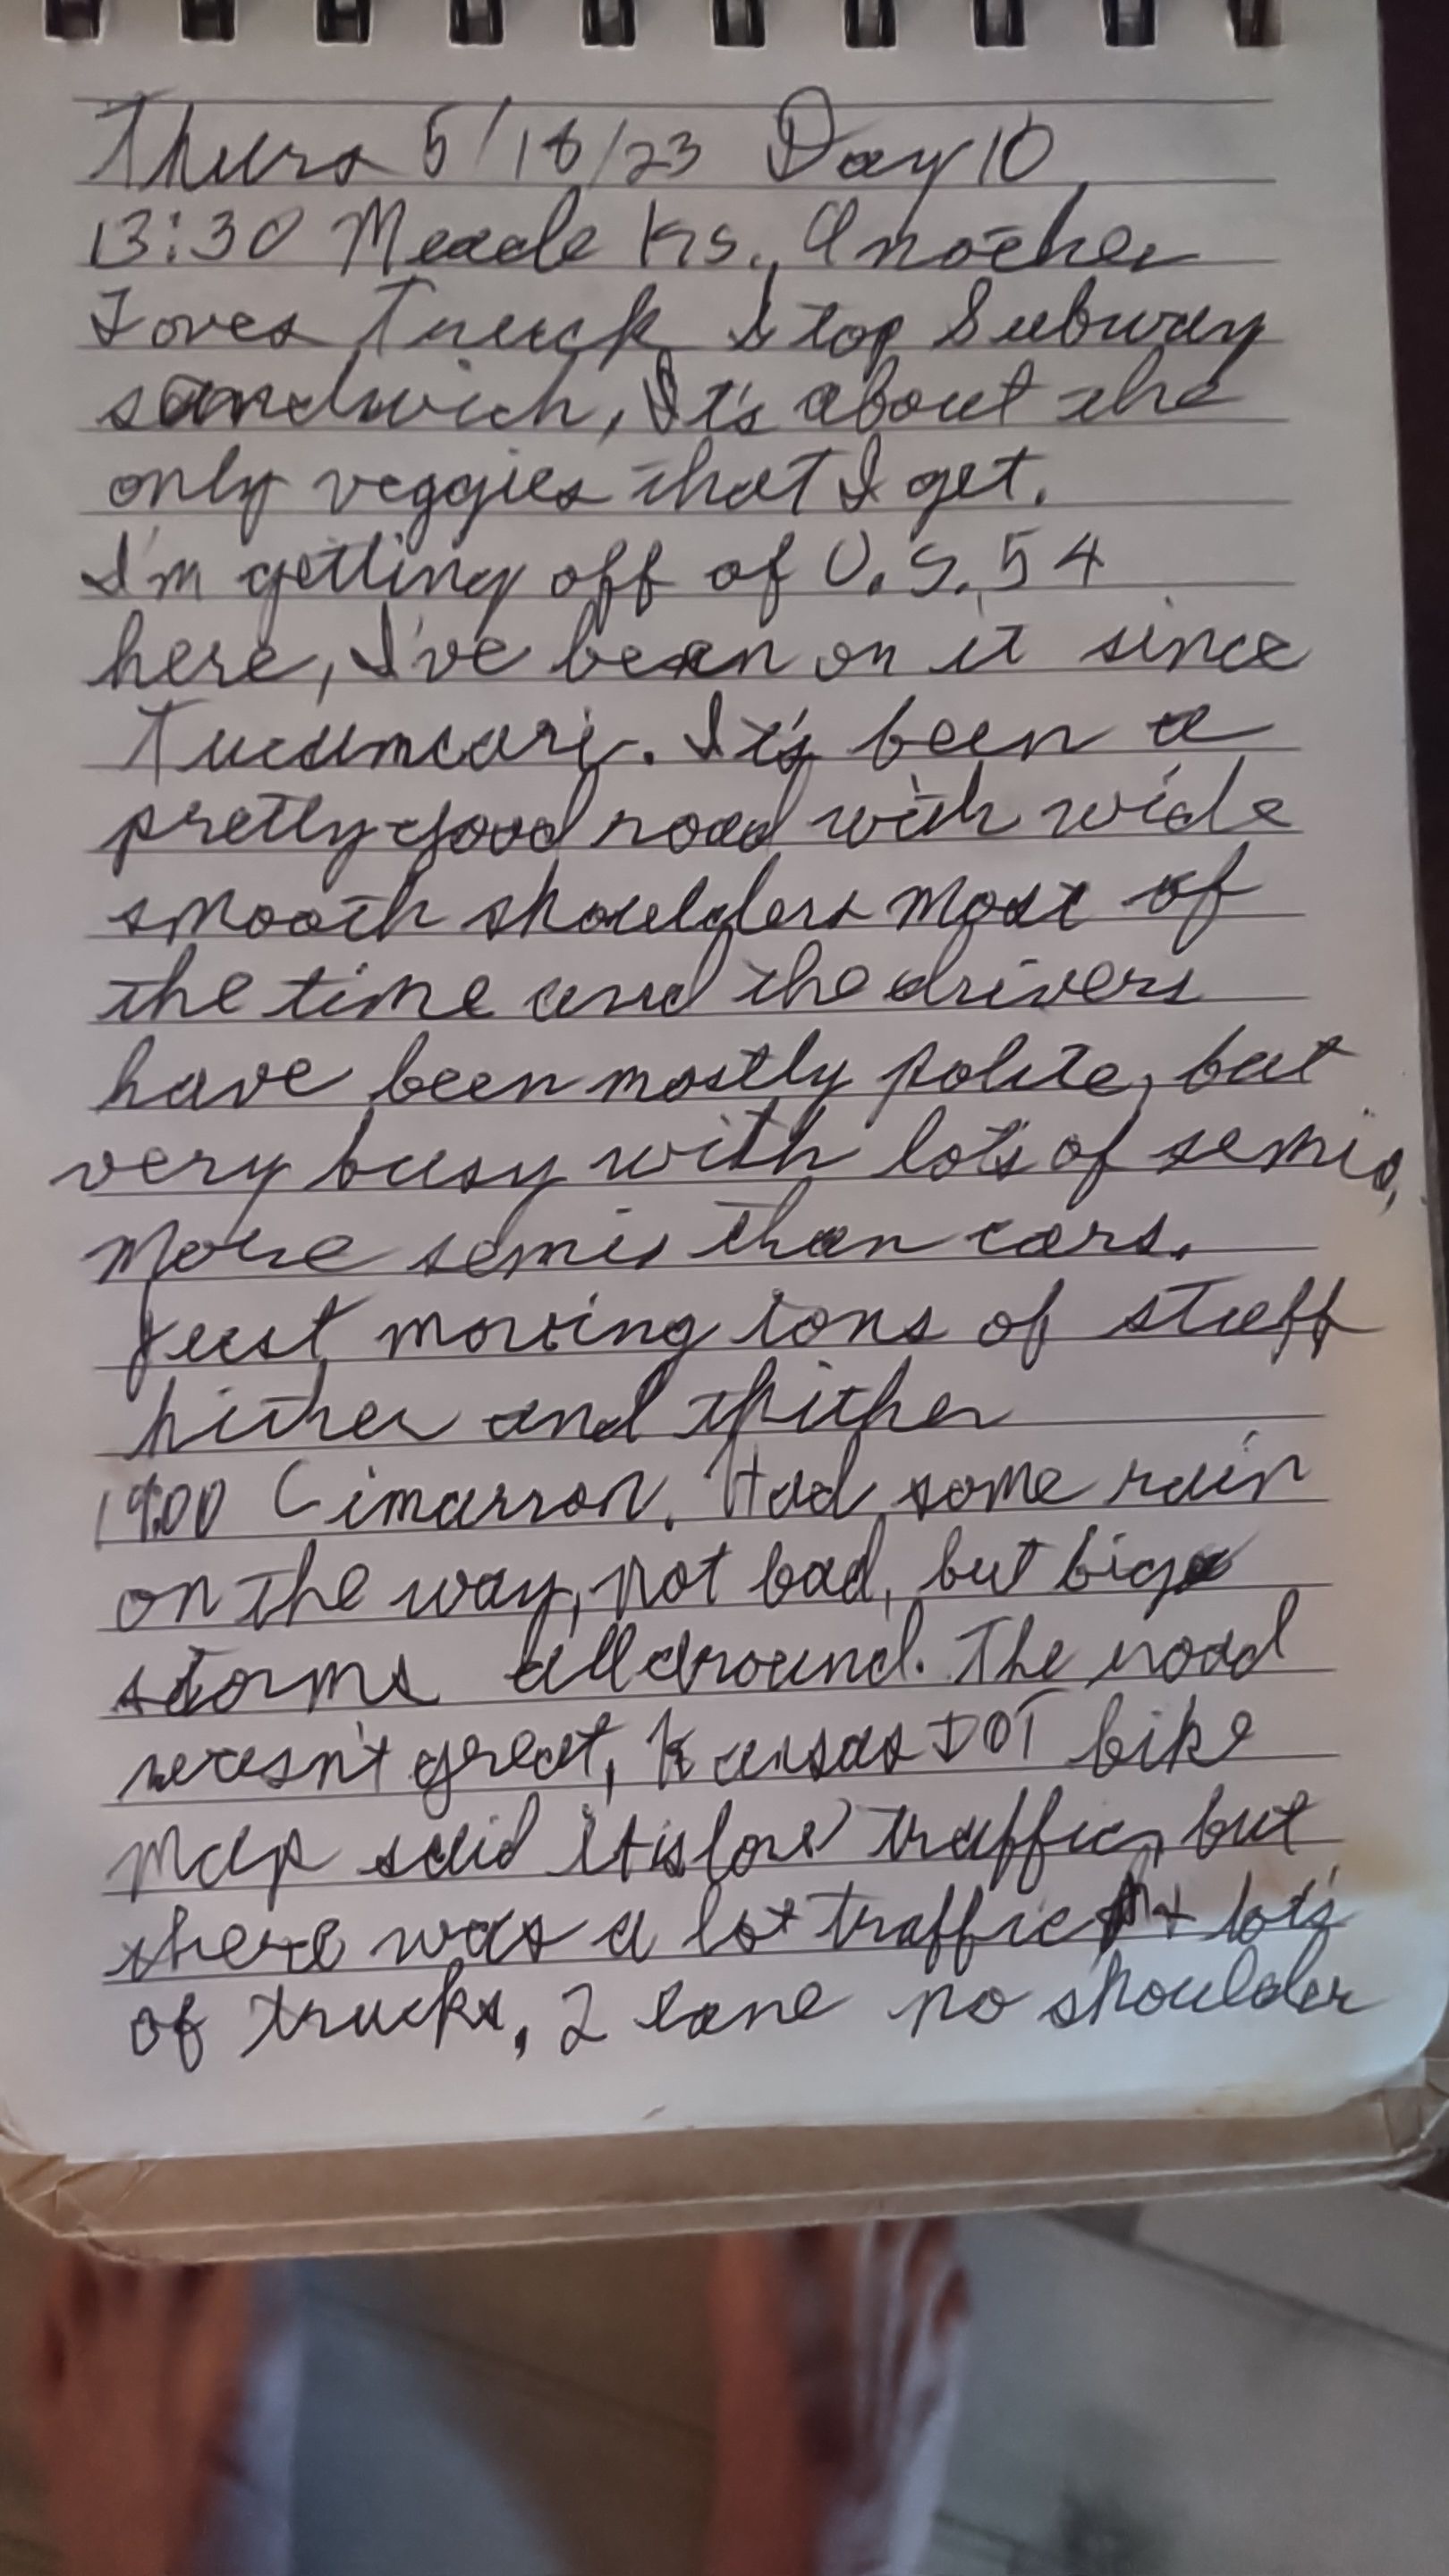 Thurs 5/18/23 Day 10
13:30 Meade Ks. Another
Loves Truck Stop Subway
sandwich, It's about the
only veggies that I get.
I'm getting off of U.S. 54
here, I've been on it since
Tucumcari. It's been a
pretty good road with wide
smooth shoulders most of
the time and the drivers
have been mostly polite, but
very busy with lots of semis,
more semis than cars.
Just moving tons of stuff
hither and thither
19:00 Cimarron. Had some rain
on the way, not bad, but big
storms all around. The road
wasn't great, Kansas DOT bike
map said it is low traffic, but
there was a lot traffic + lots
of trucks, 2 lane no shoulder